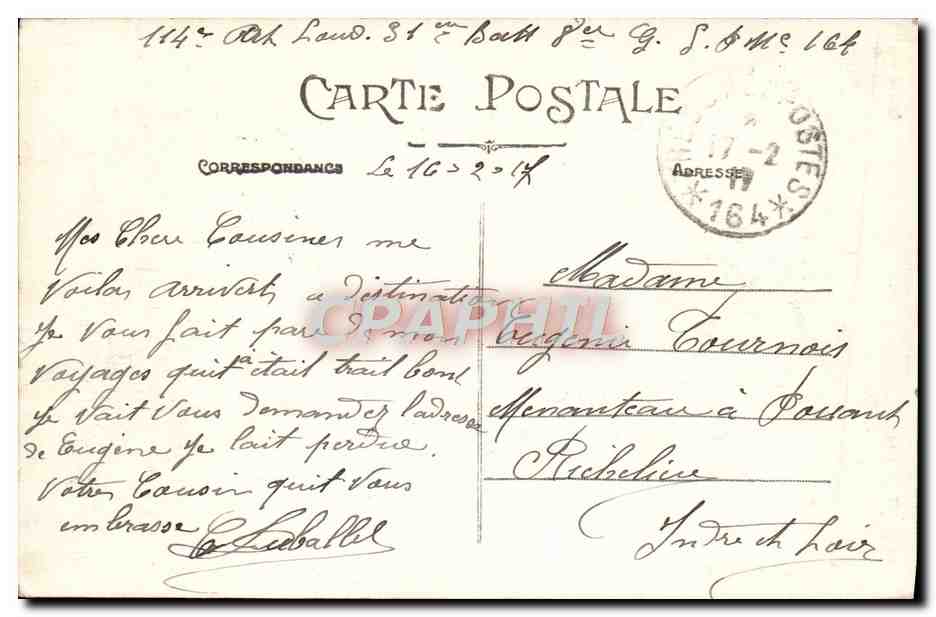 114e Art Lourd. 31em Batt 8er G. S. P Mc 164
CARTE POSTALE
CORRESPONDANCE Le 16 = 2 = 17
ADRESSE
POSTES
17 - 2
17
* 164 *
Mes Chere Cousines me
voilas arriverts a destination
Je vous fait pare de mon
voyages quit a était trait bont
Je vait vous demandez l'adresse
de Eugène Je lait perdue.
Votres Cousin quit vous
embrasse
Madame
Eugenie Tournois
Menanteau à Pousant
Richelieue
Indre et Loir
CPAPHIL